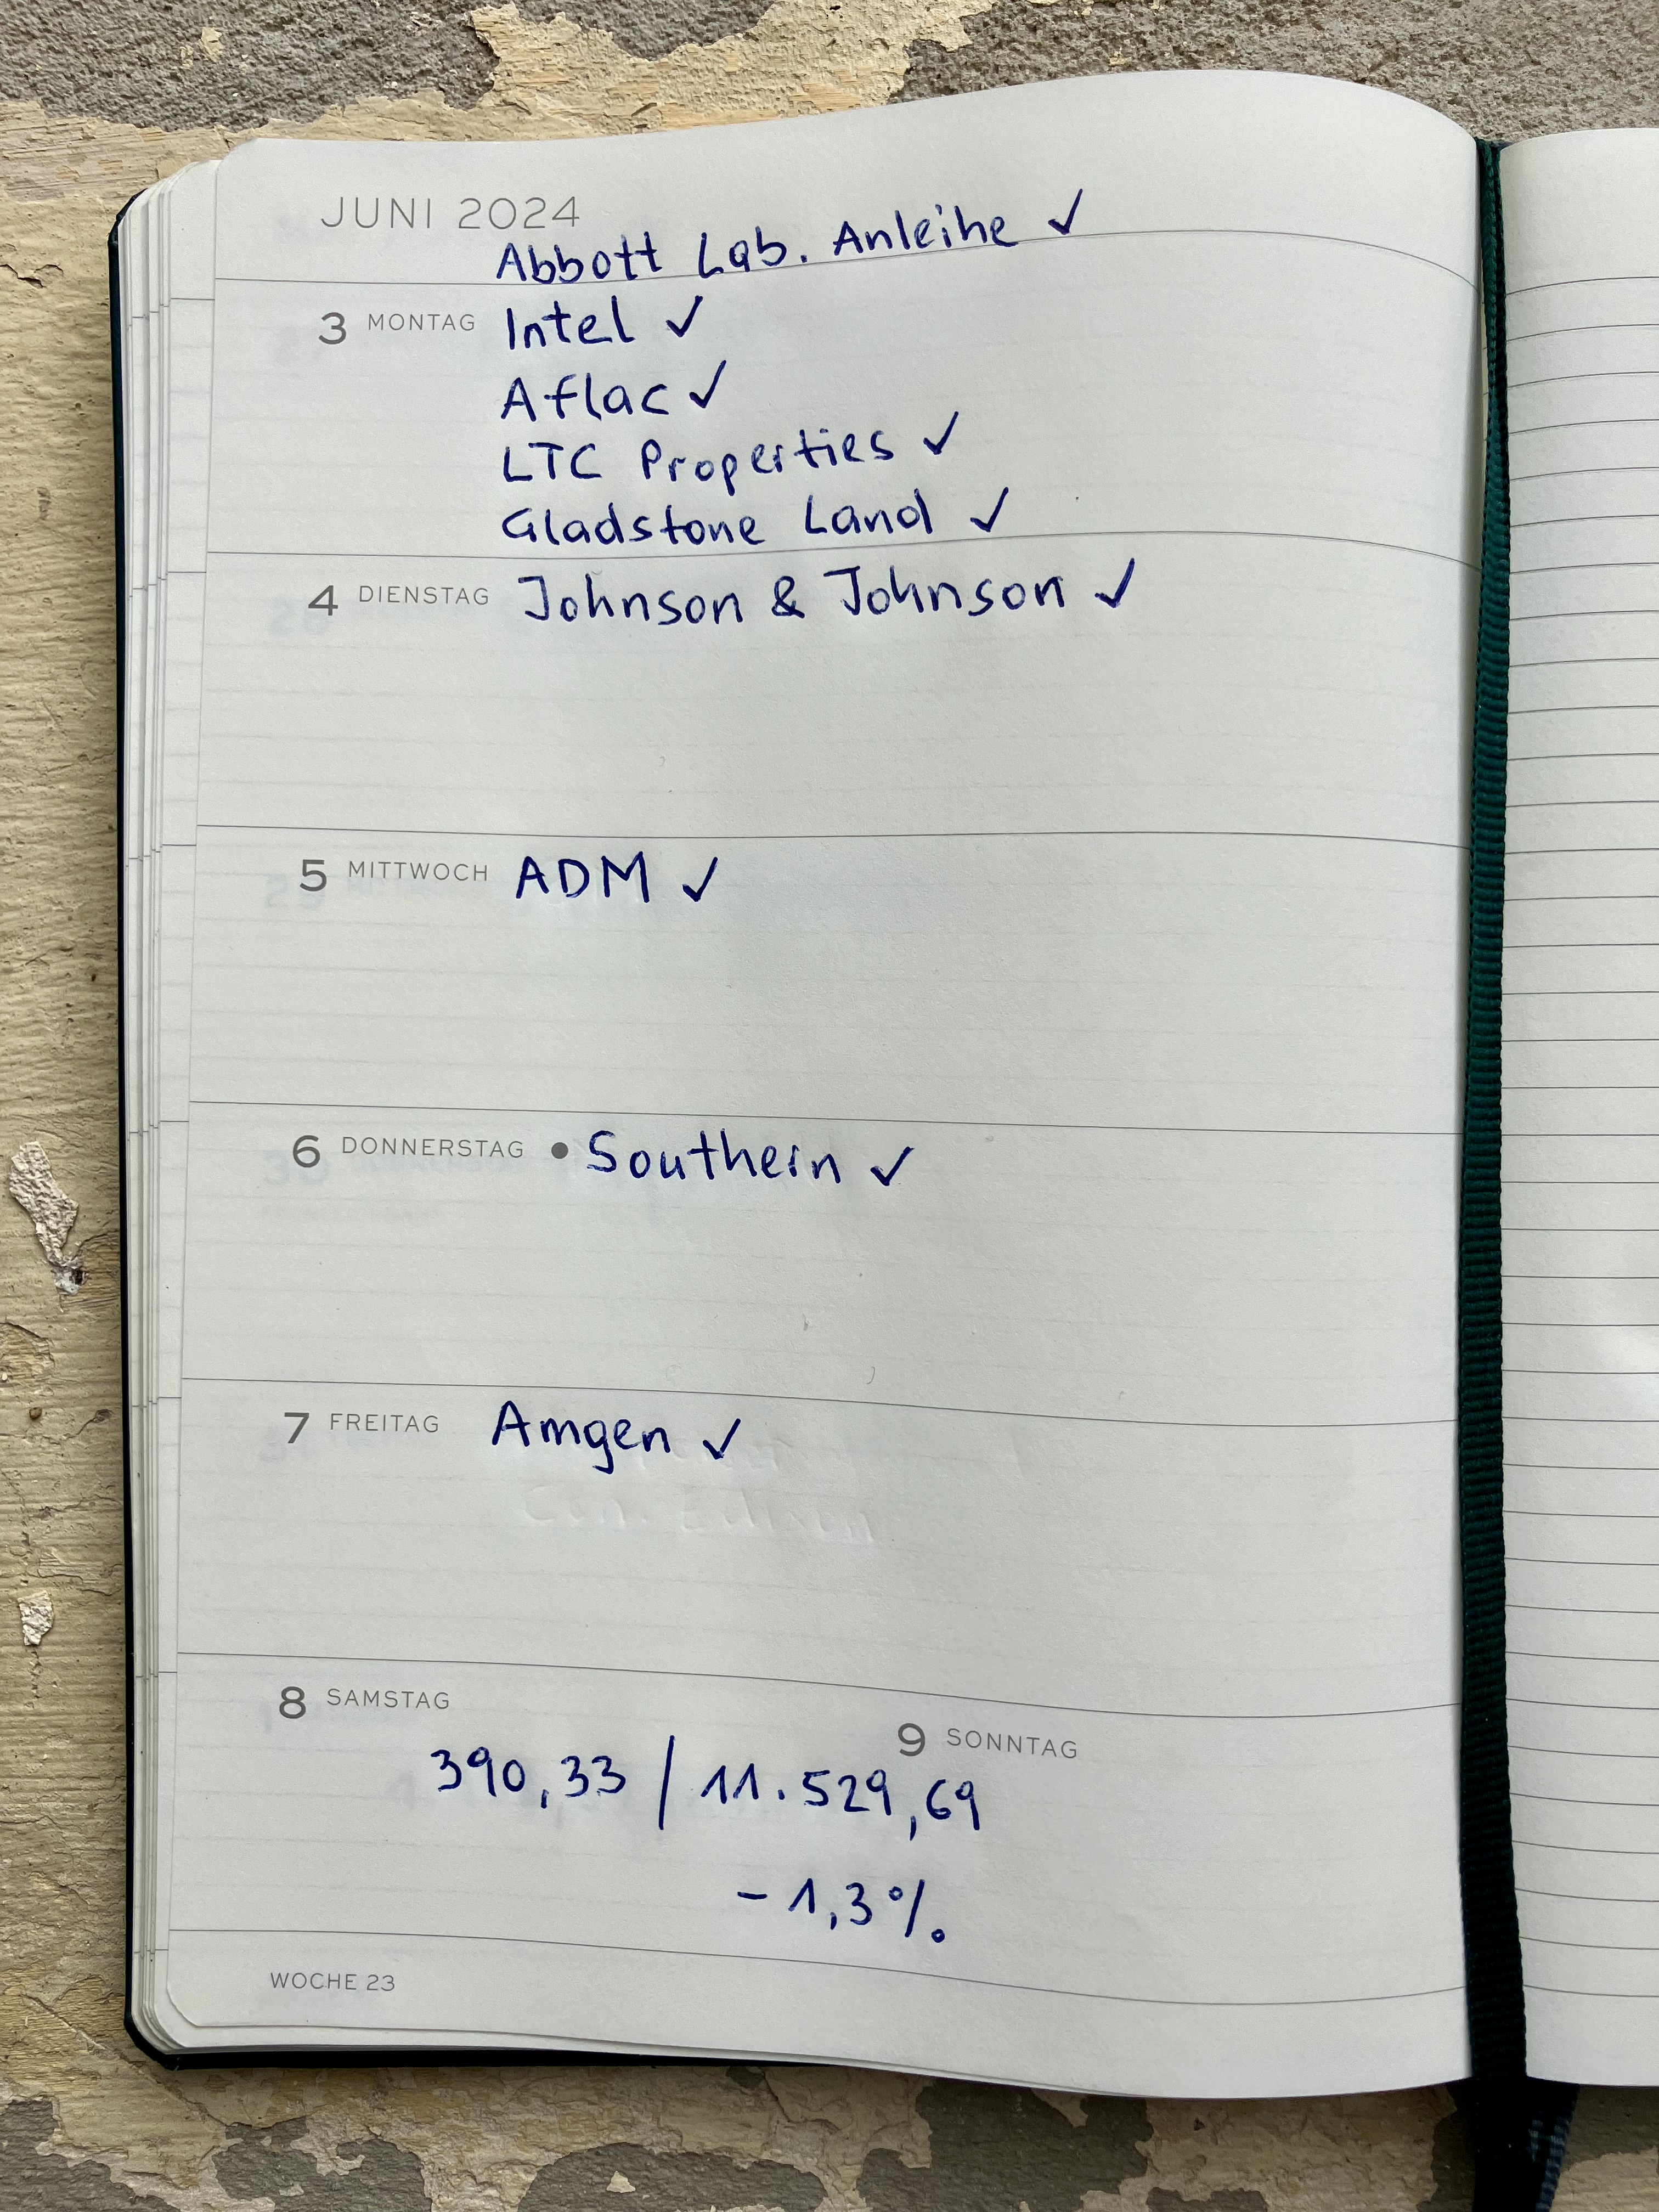 JUNI 2024
Abbott Lab. Anleihe ✓
3 MONTAG Intel ✓
Aflac ✓
LTC Properties ✓
Gladstone Land ✓
4 DIENSTAG Johnson & Johnson ✓
5 MITTWOCH ADM ✓
6 DONNERSTAG • Southern ✓
7 FREITAG Amgen ✓
Con. Edison
8 SAMSTAG
9 SONNTAG
390,33 / 11.529,69
- 1,3%
WOCHE 23